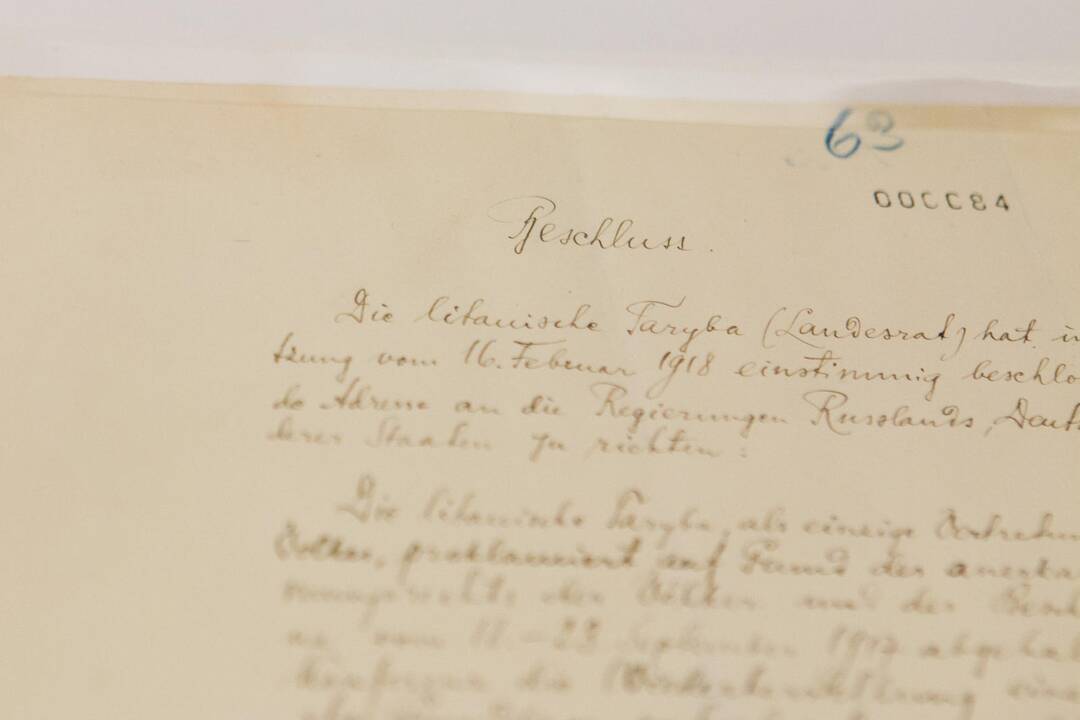 63
00CC84
Beschluss.
Die litauische Taryba (Landesrat) hat in
tzung vom 16. Februar 1918 einstimmig beschlo
de Adresse an die Regierungen Russlands, Deuts
derer Staaten zu richten:
Die litauische Taryba, als einzige Vertretun
Volkes, proklamiert auf Grund des anerka
mungsrechts der Völker und des Besch
vom 18.–23. September 1917 abgehal
Konferenz die